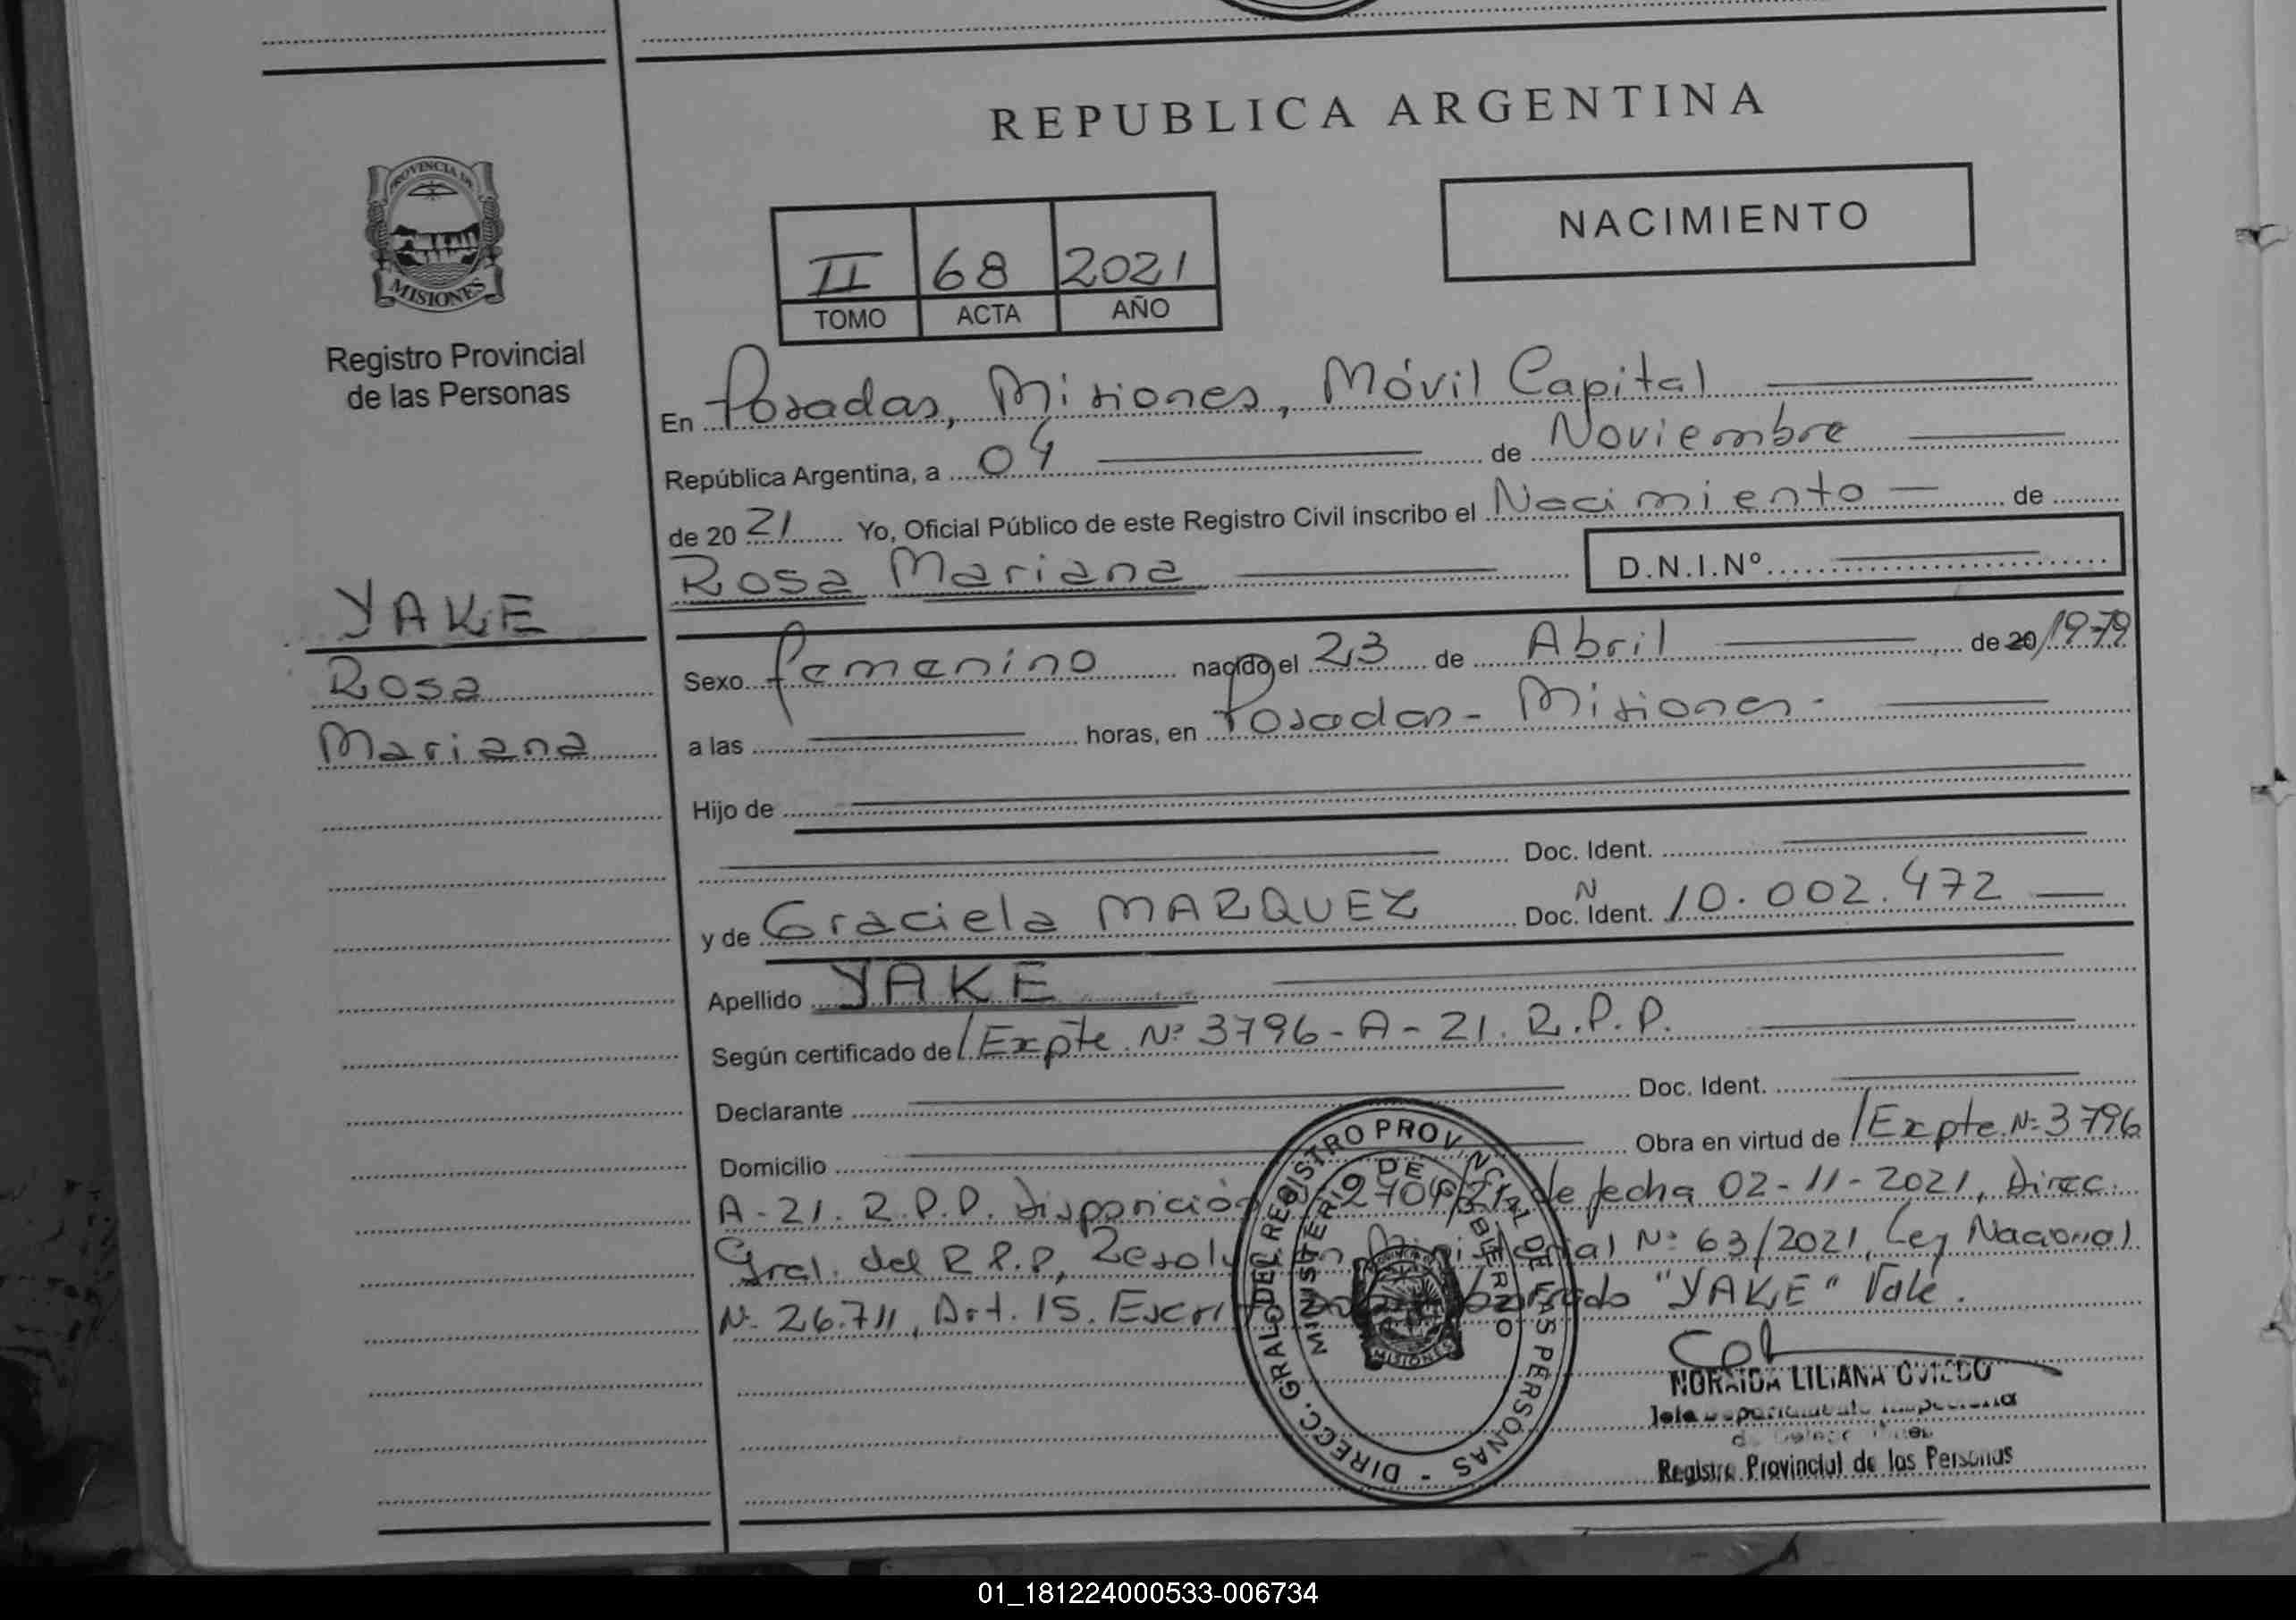 REPUBLICA ARGENTINA
PROVINCIA DE
MISIONES
Registro Provincial
de las Personas
NACIMIENTO
II 68 2021
TOMO ACTA AÑO
En Posadas, Misiones, Móvil Capital
República Argentina, a 04 de Noviembre
de 20 21 Yo, Oficial Público de este Registro Civil inscribo el Nacimiento de
Rosa Mariana D.N.I.Nº
YAKE
Rosa
Mariana
Sexo femenino nacido el 23 de Abril de 20/1979
a las horas, en Posadas - Misiones -
Hijo de
Doc. Ident.
y de Graciela MARQUEZ Doc. Ident. N 10.002.472
Apellido YAKE
Según certificado de / Expte Nº 3796-A-21. R.P.P.
Declarante Doc. Ident.
Domicilio Obra en virtud de / Expte. Nº 3796
A-21. R.P.P. Disposición 2704/21 de fecha 02-11-2021, Direc.
Gral. del R.P.P, Resolución Ministerial Nº 63/2021, Ley Nacional
Nº 26.711, Art. 15. borrado "YAKE" Vale.
DIRECC. GRAL. DEL REGISTRO PROVINCIAL DE LAS PERSONAS -
MINISTERIO DE GOBIERNO
MISIONES
NORAIDA LILIANA OVIEDO
Registro Provincial de las Personas
01_181224000533-006734